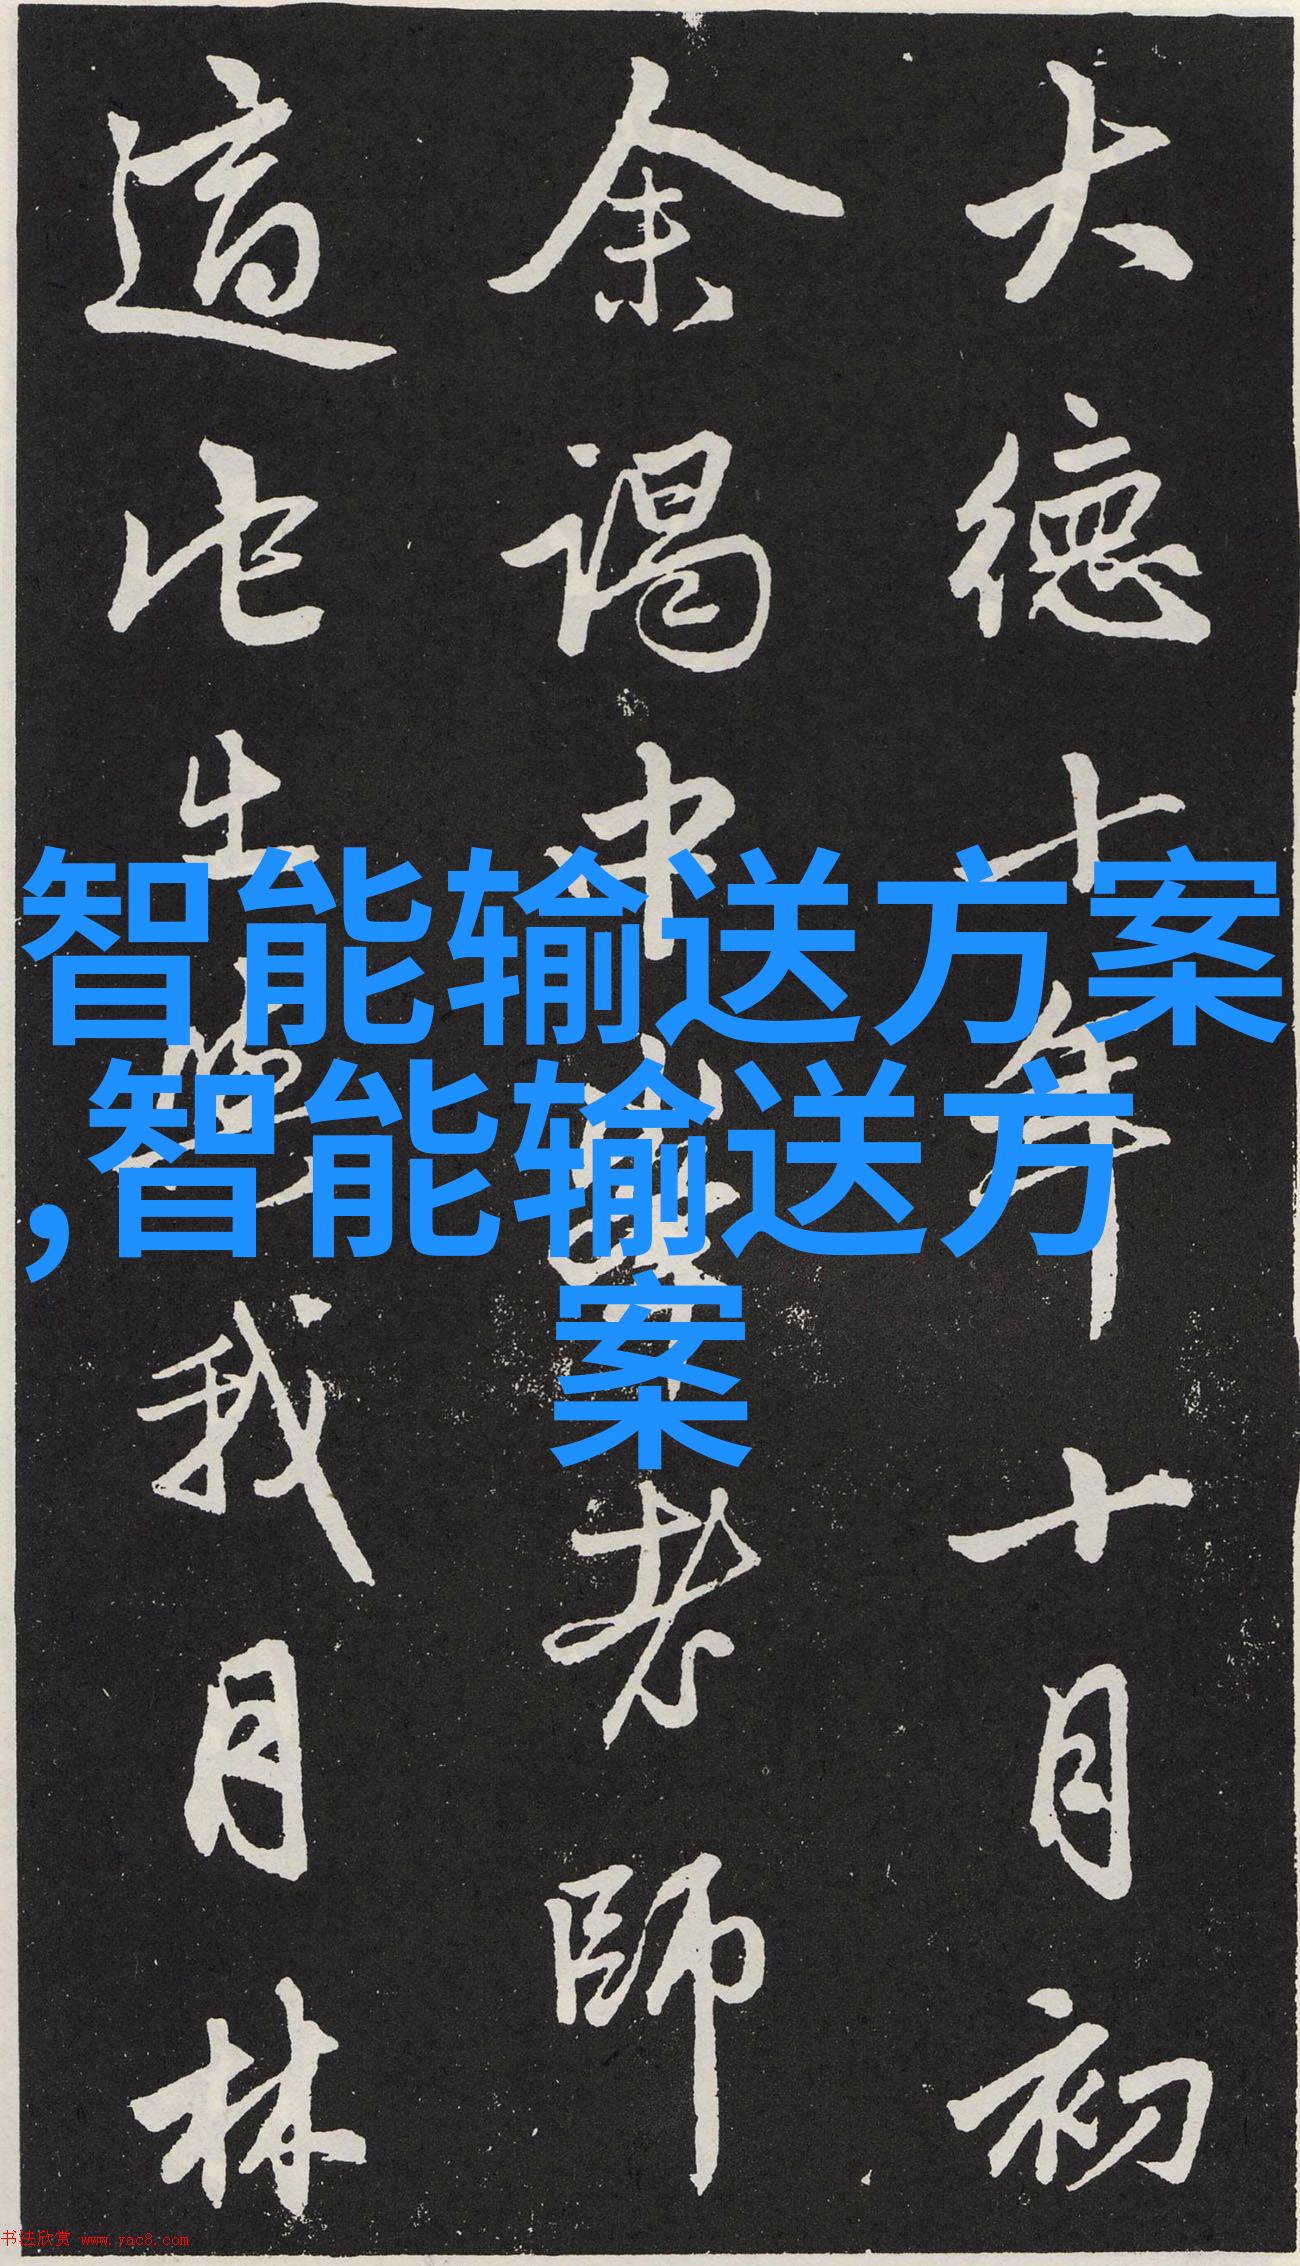 大德十年十月初
余謁中峯老師
此出我月林
智能输送方案
,智能输送方
案
书法欣赏 www.yac8.com